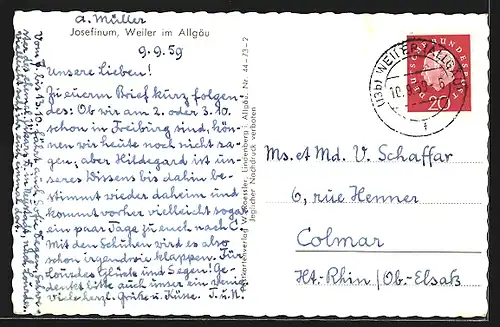 a. Müller
Josefinum, Weiler im Allgäu
9.9.59
Unsere Lieben!
Zu euerm Brief kurz folgen-
des: Ob wir am 2. oder 3.10.
schon in Freiburg sind, kön-
nen wir heute noch nicht sa-
gen, aber Hildegard ist un-
seres Wissens bis dahin be-
stimmt wieder daheim und
kommt vorher vielleicht sogar
ein paar Tage zu euch nach C.
Mit den Schuhen wird es also
schon irgendwie klappen. Für
Lourdes Glück und Segen! Ge-
denkt bitte auch unser ein wenig
Viele herzl. Grüße u. Küsse. T. u. H.
Vom 7. bis 13.10. fährt auch
Postkartenverlag W. Roessler, Lindenberg i. Allgäu. Nu 44-73-2
Jeglicher Nachdruck verboten
(13b) WEILER (ALLGÄU)
10.9.59
DEUTSCHE BUNDESPOST
20
Ms. et Md. V. Schaffar
6, rue Henner
Colmar
Ht.-Rhin/Ob.-Elsaß